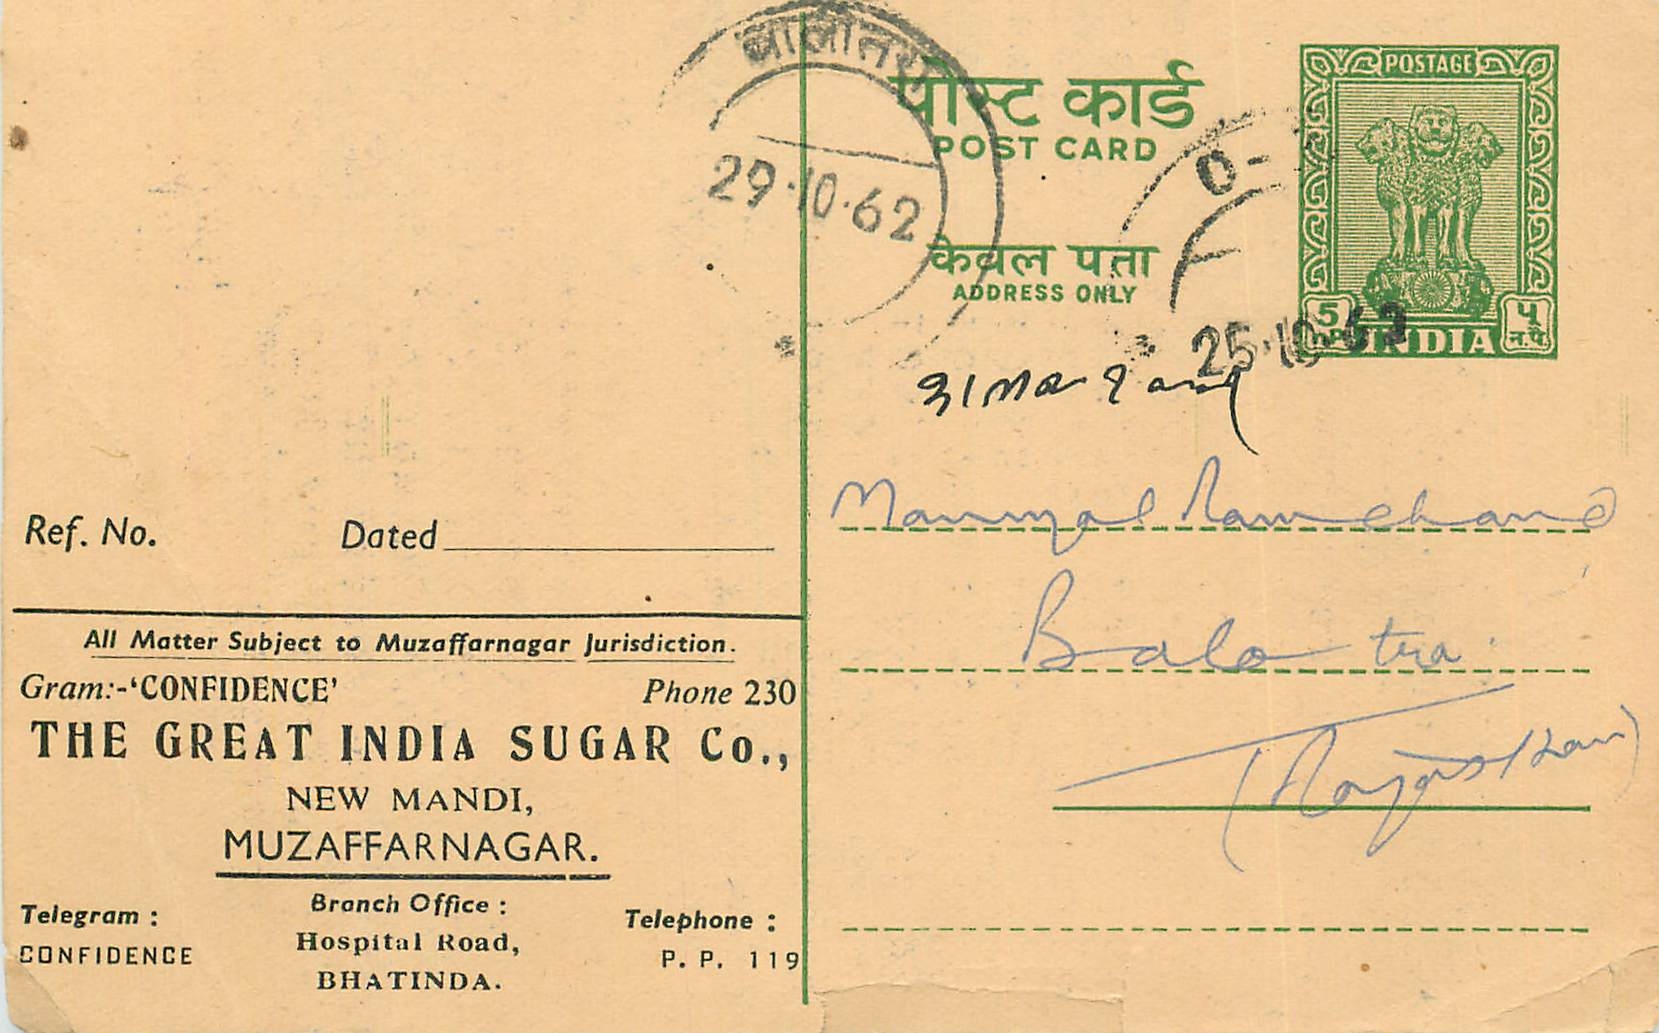 बालोतरा
29·10·62
पोस्ट कार्ड
POST CARD
केवल पता
ADDRESS ONLY
POSTAGE
5
प
न.पै
INDIA
25·10·62
Ref. No. Dated
All Matter Subject to Muzaffarnagar Jurisdiction.
Gram:-'CONFIDENCE' Phone 230
THE GREAT INDIA SUGAR Co.,
NEW MANDI,
MUZAFFARNAGAR.
Telegram :
CONFIDENCE
Branch Office :
Hospital Road,
BHATINDA.
Telephone :
P. P. 119
Ramchand
Balotra
(Rajasthan)